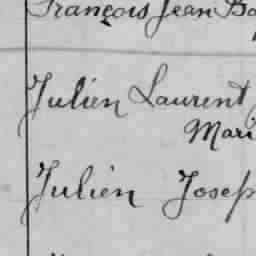 François Jean Ba
Julien Laurent
Mari
Julien Josep